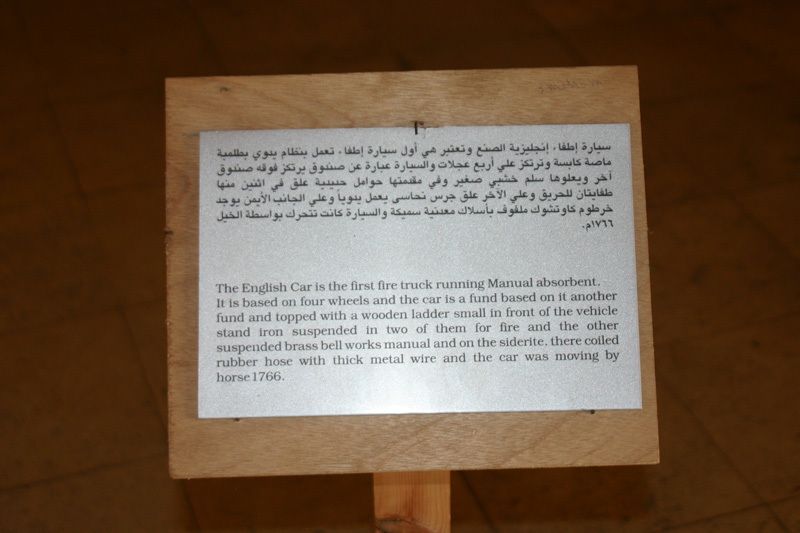 سيارة إطفاء إنجليزية الصنع وتعتبر هي أول سيارة إطفاء تعمل بنظام يدوي بطلمبة
ماصة كابسة وترتكز علي أربع عجلات والسيارة عبارة عن صندوق يرتكز فوقه صندوق
أخر ويعلوها سلم خشبي صغير وفي مقدمتها حوامل حديدية علق في اثنين منها
طفايتان للحريق وعلي الآخر علق جرس نحاسى يعمل يدوياً وعلي الجانب الأيمن يوجد
خرطوم كاوتشوك ملفوف بأسلاك معدنية سميكة والسيارة كانت تتحرك بواسطة الخيل
١٧٦٦م.
The English Car is the first fire truck running Manual absorbent.
It is based on four wheels and the car is a fund based on it another
fund and topped with a wooden ladder small in front of the vehicle
stand iron suspended in two of them for fire and the other
suspended brass bell works manual and on the siderite. there coiled
rubber hose with thick metal wire and the car was moving by
horse 1766.